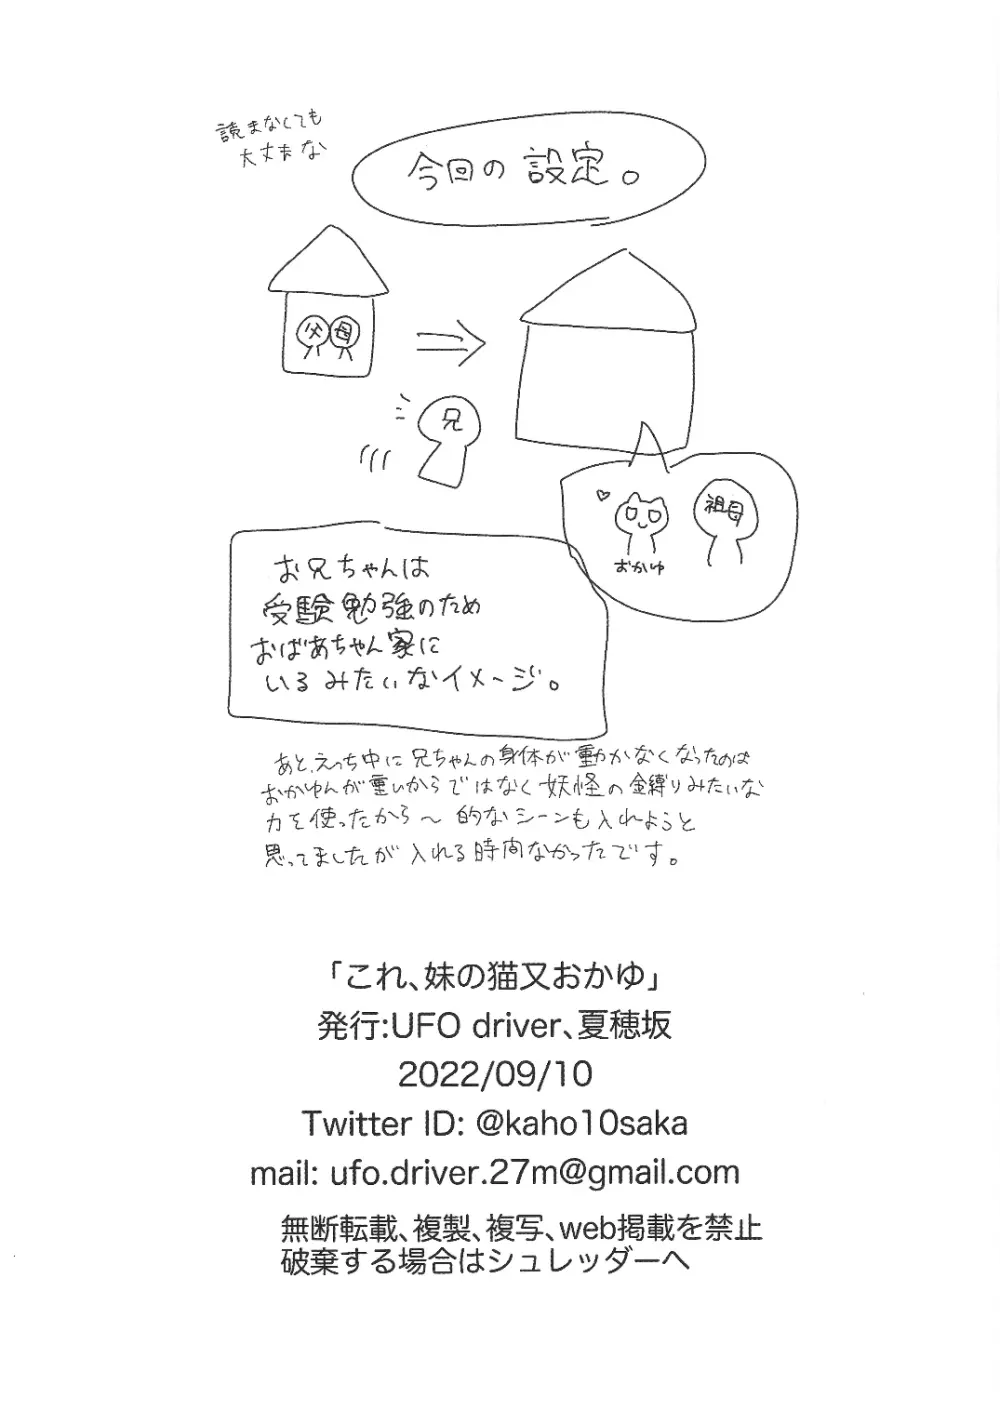 読まなくても
大丈夫な
今回の設定。
父 母
兄
祖母
おかゆ
お兄ちゃんは
受験勉強のため
おばあちゃん家に
いるみたいなイメージ。
あと、えっち中に兄ちゃんの身体が動かなくなったのは
おかゆんが重いからではなく妖怪の金縛りみたいな
力を使ったから〜的なシーンも入れようと
思ってましたが入れる時間なかったです。
「これ、妹の猫又おかゆ」
発行:UFO driver、夏穂坂
2022/09/10
Twitter ID: @kaho10saka
mail: ufo.driver.27m@gmail.com
無断転載、複製、複写、web掲載を禁止
破棄する場合はシュレッダーへ